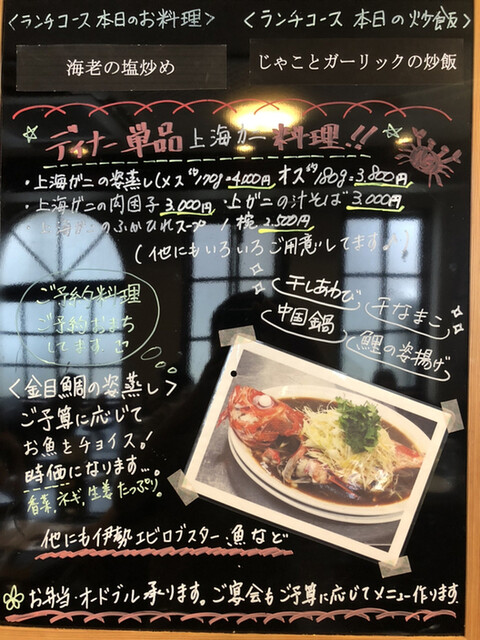 <ランチコース 本日のお料理>
<ランチコース 本日の炒飯>
海老の塩炒め
じゃことガーリックの炒飯
☆ディナー単品 上海ガニ 料理!!☆
・上海ガニの姿蒸し(メス約170g=4,000円 オス約180g=3,800円
・上海ガニの肉団子 3,000円 ・上ガニの汁そば 3,000円
・上海ガニのふかひれスープ 1椀 2,500円
(他にもいろいろご用意してます♪)
ご予約料理
ご予約おまち
してます
干しあわび
干なまこ
中国鍋
鯉の姿揚げ
<金目鯛の姿蒸し>
ご予算に応じて
お魚をチョイス!
時価になります…。
香菜、ネギ、生姜たっぷり。
他にも伊勢エビロブスター、魚など
お弁当・オードブル承ります。ご宴会もご予算に応じてメニュー作ります